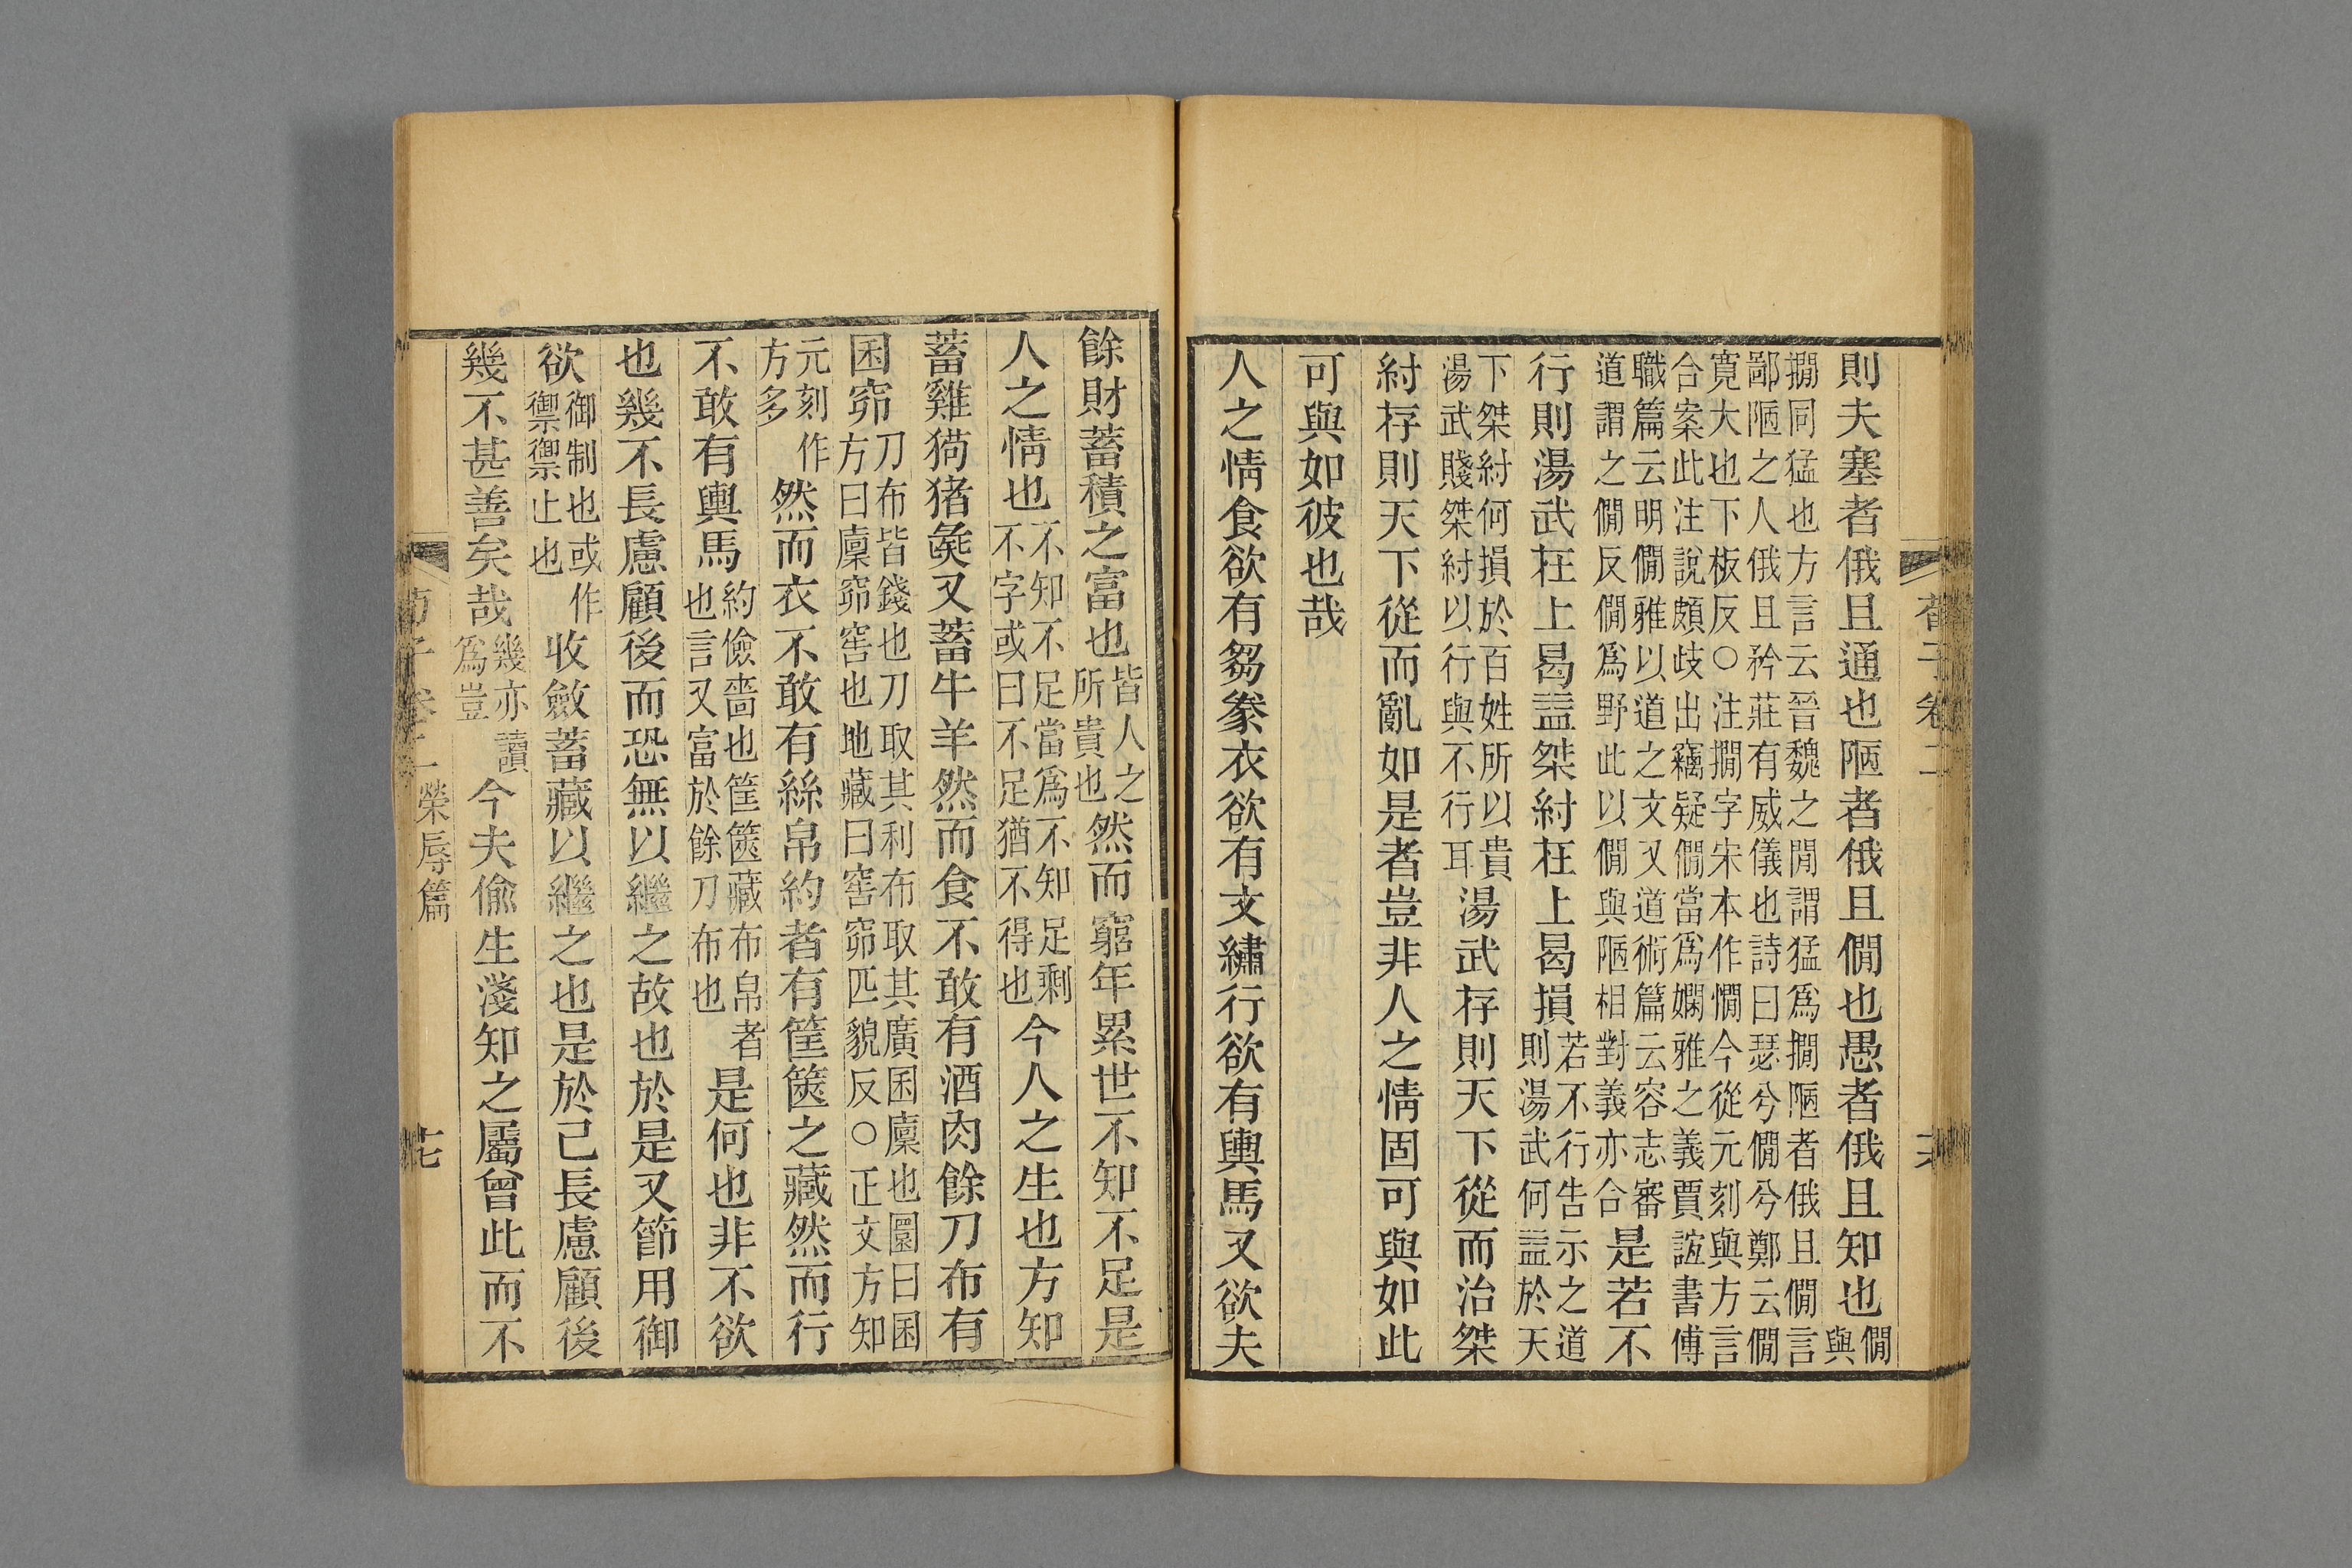 荀子卷二
則夫塞者俄且通也陋者俄且僩也愚者俄且知也僩與
撊同猛也方言云晉魏之閒謂猛爲撊陋者俄且僩言
鄙陋之人俄且矜莊有威儀也詩曰瑟兮僩兮鄭云僩
寬大也下板反○注撊字宋本作憪今從元刻與方言
合案此注說頗歧出竊疑僩當爲嫻雅之義賈誼書傅
職篇云明僩雅以道之文又道術篇云容志審
道謂之僩反僩爲野此以僩與陋相對義亦合是若不
行則湯武在上曷益桀紂在上曷損若不行告示之道則湯武何益於天
下桀紂何損於百姓所以貴湯武賤桀紂以行與不行耳湯武存則天下從而治桀
紂存則天下從而亂如是者豈非人之情固可與如此
可與如彼也哉
人之情食欲有芻豢衣欲有文繡行欲有輿馬又欲夫
餘財蓄積之富也皆人之所貴也然而窮年累世不知不足是
人之情也不知不足當爲不知足剩不字或曰不足猶不得也今人之生也方知
蓄雞狗猪彘又蓄牛羊然而食不敢有酒肉餘刀布有
囷窌刀布皆錢也刀取其利布取其廣囷廩也圜曰囷方曰廩窌窖也地藏曰窖窌匹貌反○正文方知
元刻作方多然而衣不敢有絲帛約者有筐篋之藏然而行
不敢有輿馬約儉嗇也筐篋藏布帛者也言又富於餘刀布也是何也非不欲
也幾不長慮顧後而恐無以繼之故也於是又節用御
欲御制也或作禦禦止也收斂蓄藏以繼之也是於己長慮顧後
幾不甚善矣哉幾亦讀爲豈今夫偷生淺知之屬曾此而不
荀子卷二 榮辱篇 十七